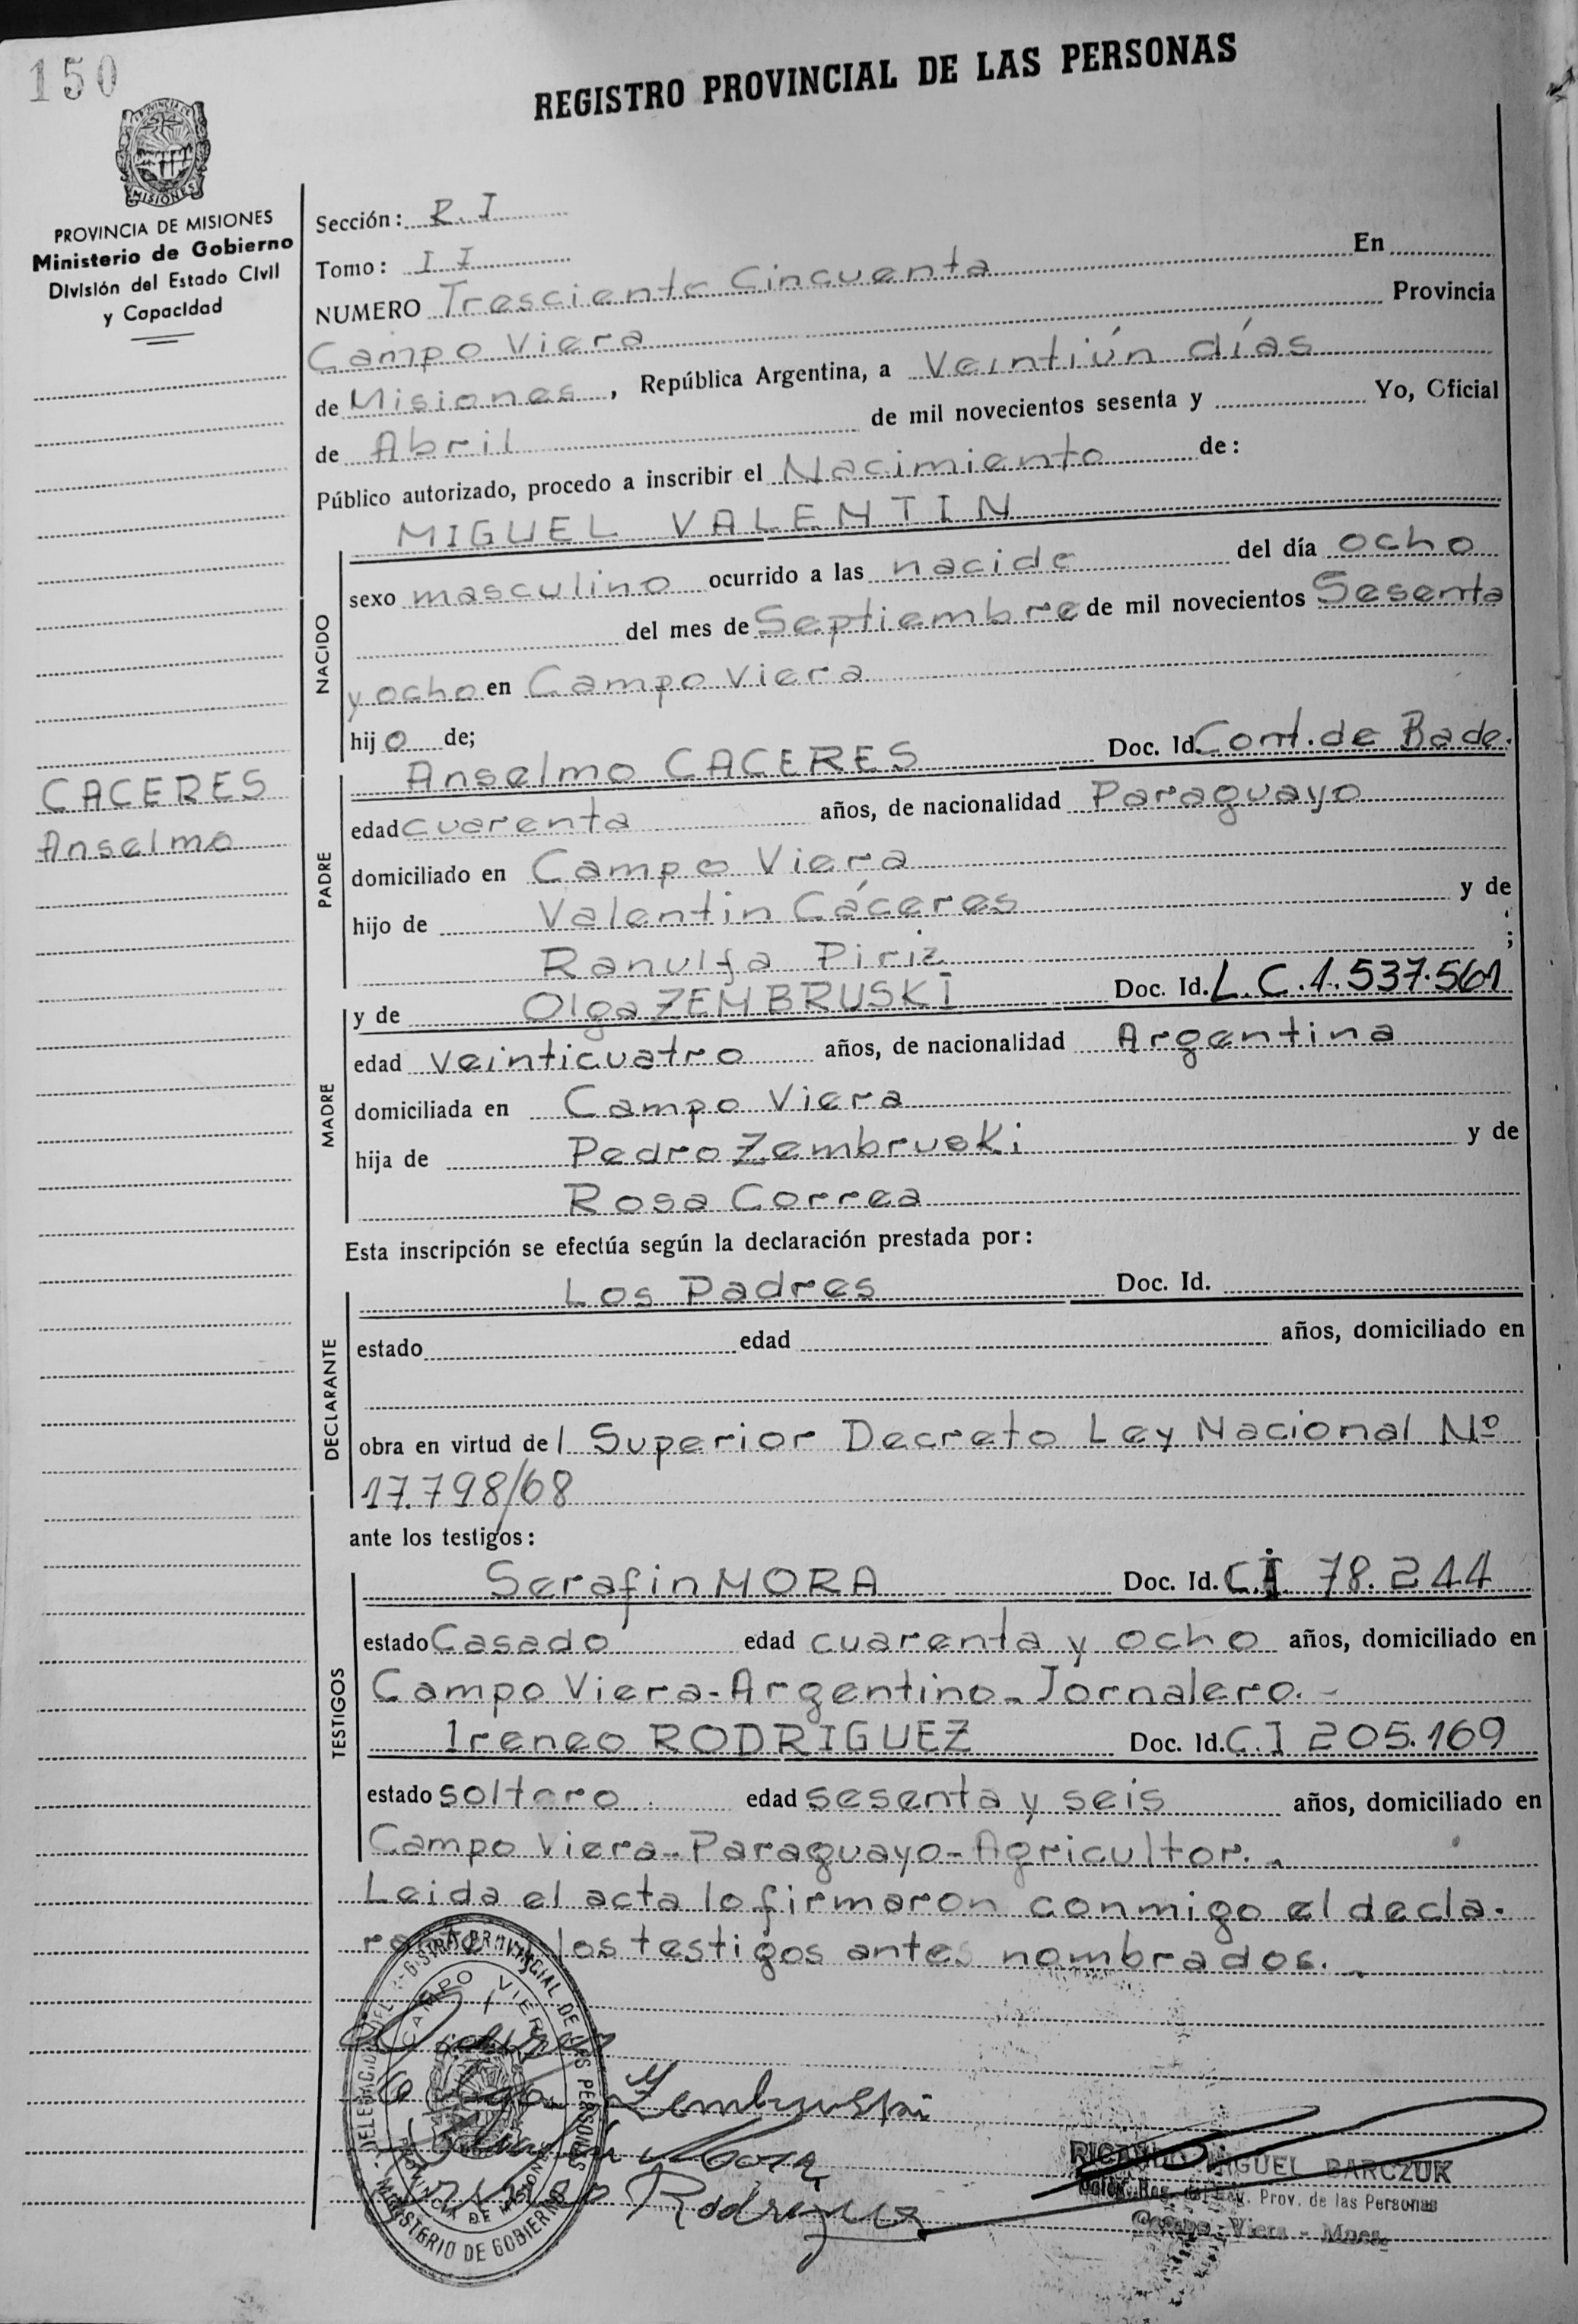 150
REGISTRO PROVINCIAL DE LAS PERSONAS
MISIONES
PROVINCIA DE MISIONES
Ministerio de Gobierno
División del Estado Civil
y Capacidad
Sección: R.I
Tomo: II
NUMERO Tresciento Cincuenta En
Campo Viera Provincia
de Misiones, República Argentina, a Veintiún días
de Abril de mil novecientos sesenta y Yo, Oficial
Público autorizado, procedo a inscribir el Nacimiento de:
MIGUEL VALENTIN
NACIDO
sexo masculino ocurrido a las nacido del día ocho
del mes de Septiembre de mil novecientos Sesenta
y ocho en Campo Viera
hijo de;
CACERES
Anselmo
PADRE
Anselmo CACERES Doc. Id. Cont. de Bade.
edad cuarenta años, de nacionalidad Paraguayo
domiciliado en Campo Viera
hijo de Valentin Cáceres y de
Ranulfa Piriz ;
MADRE
y de Olga ZEMBRUSKI Doc. Id. L.C.1.537.561
edad veinticuatro años, de nacionalidad Argentina
domiciliada en Campo Viera
hija de Pedro Zembruski y de
Rosa Correa
Esta inscripción se efectúa según la declaración prestada por:
DECLARANTE
Los Padres Doc. Id.
estado edad años, domiciliado en
obra en virtud del Superior Decreto Ley Nacional Nº
17.798/68
ante los testigos:
TESTIGOS
Serafin MORA Doc. Id. C.I. 78.244
estado Casado edad cuarenta y ocho años, domiciliado en
Campo Viera-Argentino-Jornalero.-
Ireneo RODRIGUEZ Doc. Id. C.I 205.169
estado soltero edad sesenta y seis años, domiciliado en
Campo Viera-Paraguayo-Agricultor.-
Leida el acta lo firmaron conmigo el decla-
rante los testigos antes nombrados.-
DELEGACION DEL REGISTRO PROVINCIAL DE LAS PERSONAS
CAMPO VIERA
PROVINCIA DE MISIONES
MINISTERIO DE GOBIERNO
Olga Zembruski
Serafin Mora
Ireneo Rodriguez
RICARDO MIGUEL BARCZUK
Prov. de las Personas
Campo Viera - Mnes.